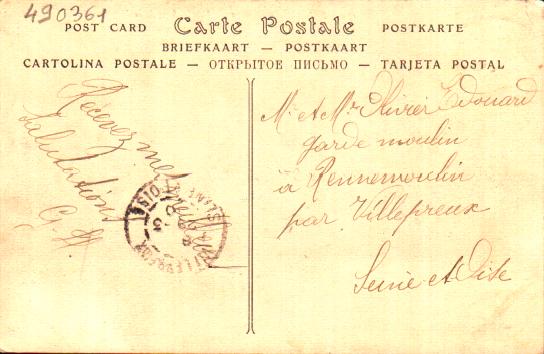 490361
POST CARD Carte Postale POSTKARTE
BRIEFKAART — POSTKAART
CARTOLINA POSTALE — ОТКРЫТОЕ ПИСЬМО — TARJETA POSTAL
Recevez mes meilleures
salutations
G. H
SEINE ET OISE
Mr et Mme Olivier Edouard
garde moulin
à Rennemoulin
par Villepreux
Seine et Oise